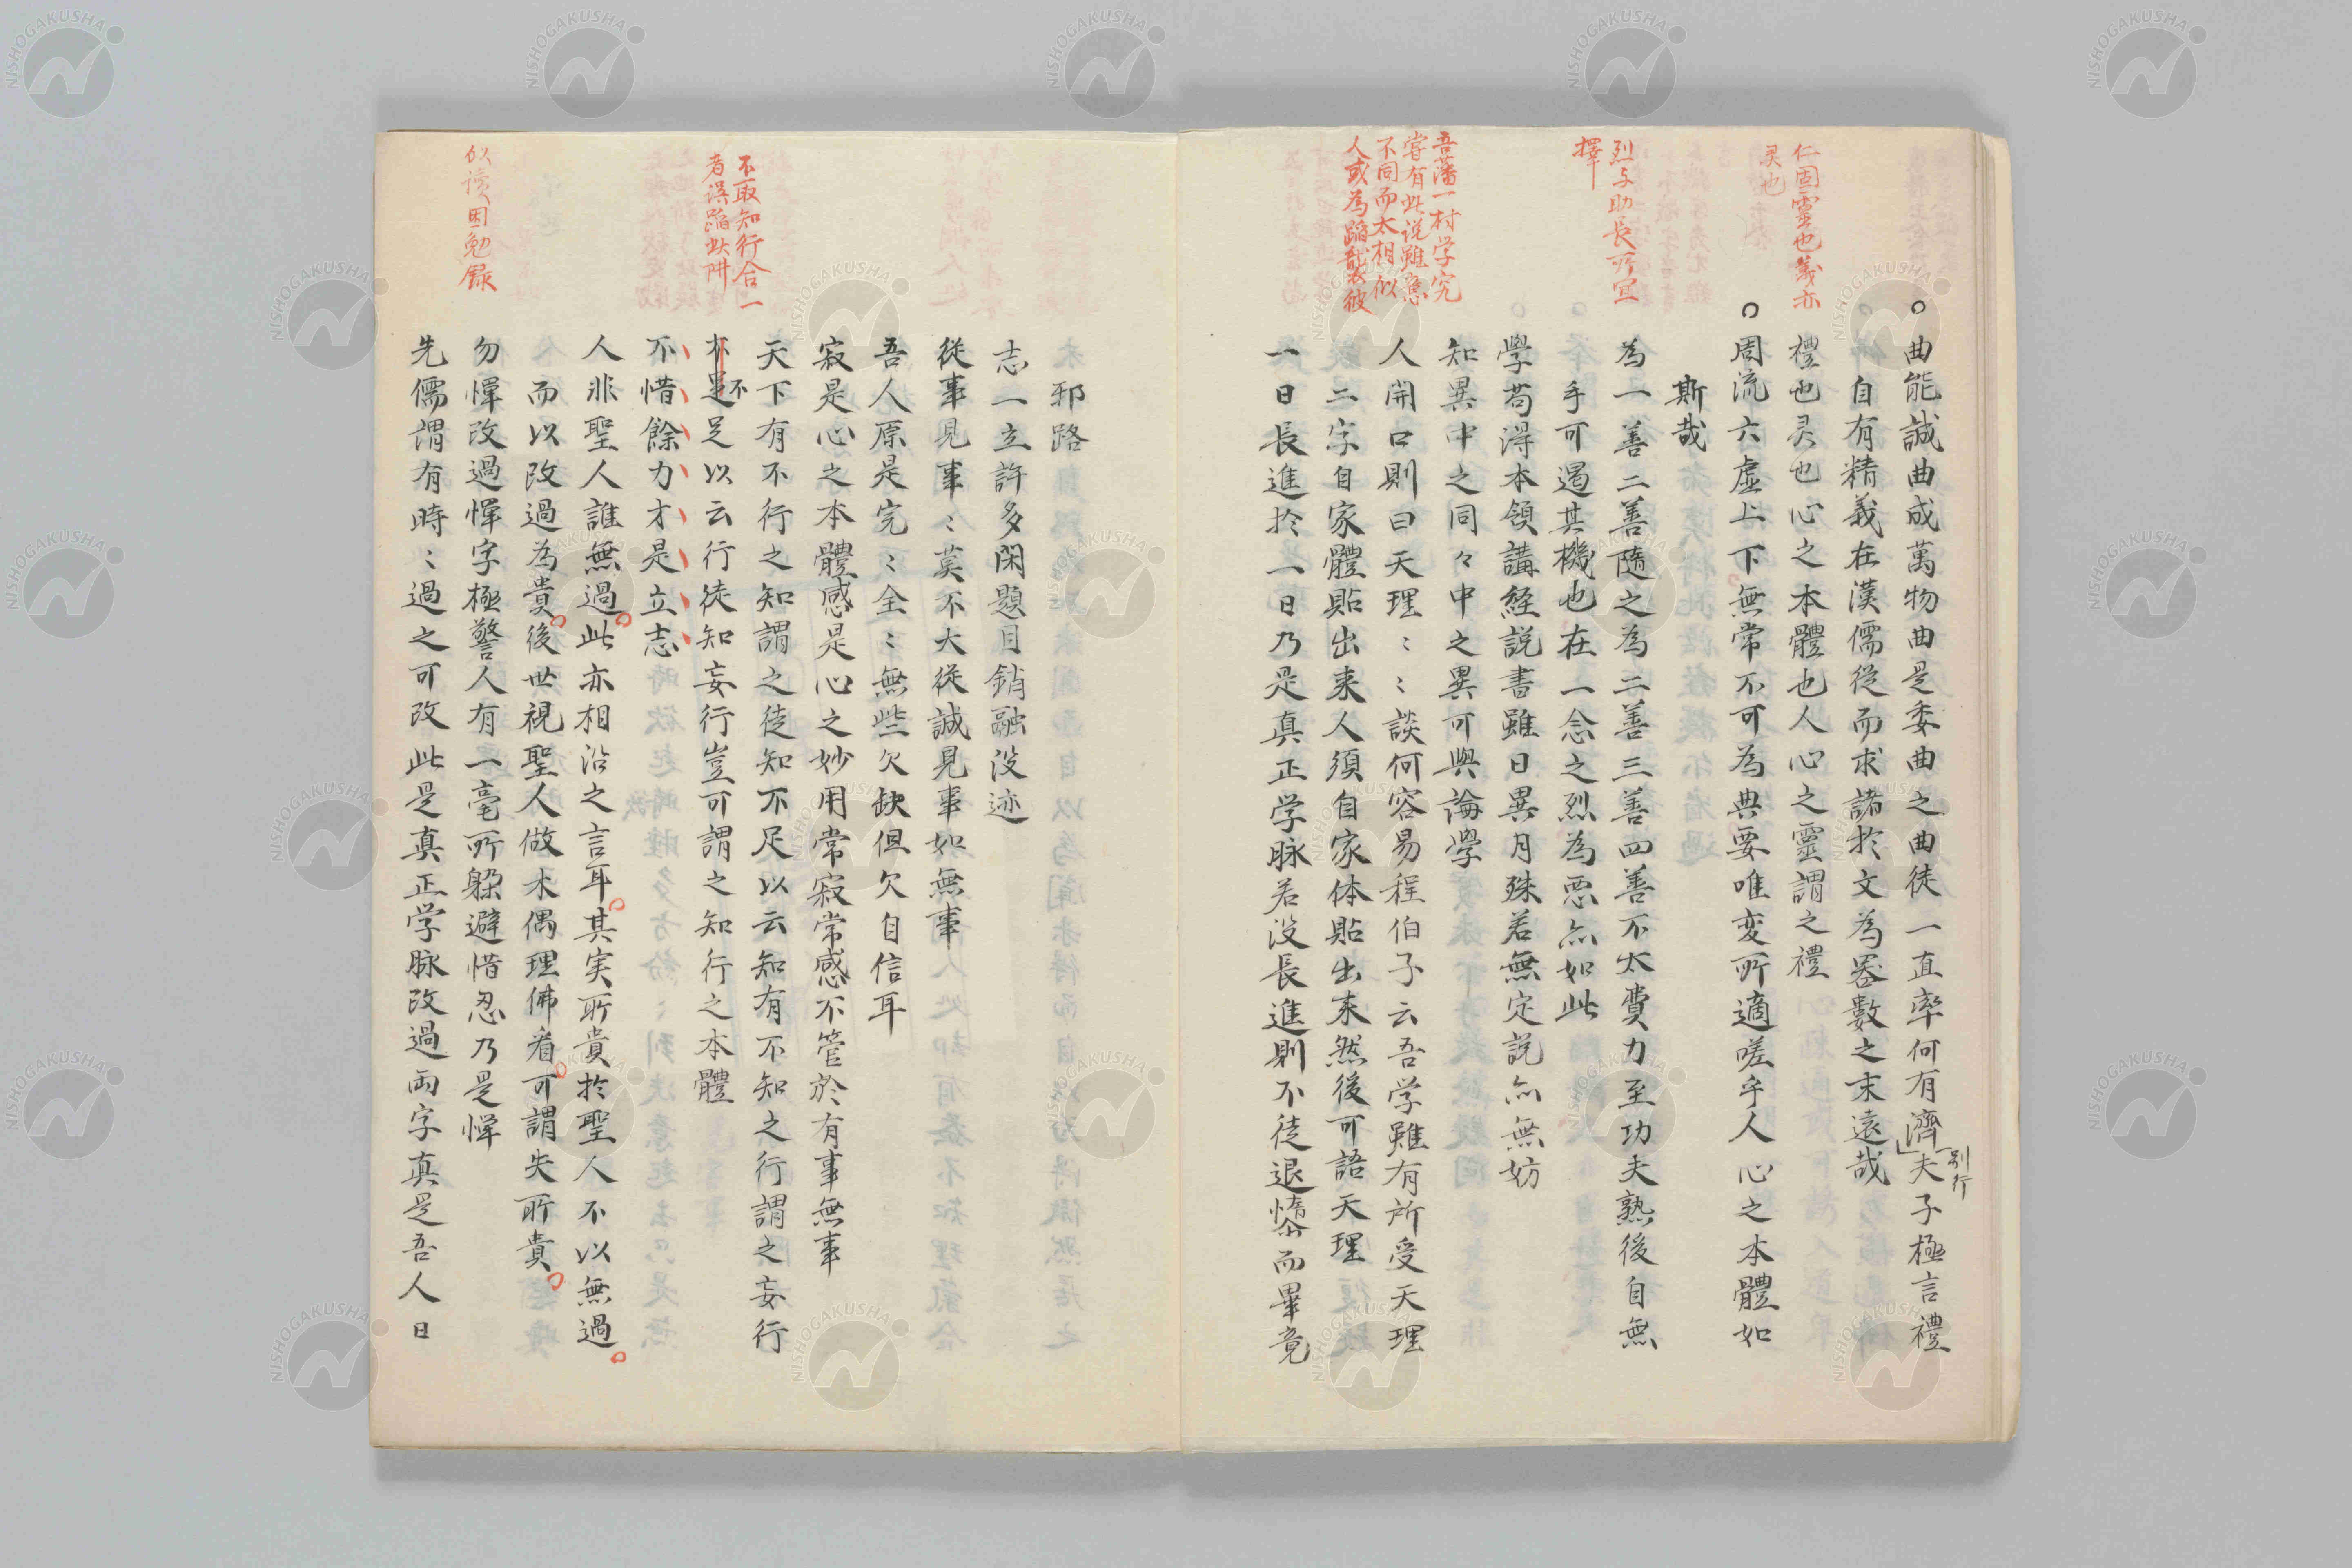 仁固靈也義亦
灵也
烈与助長所宜
擇
吾藩一村学究
嘗有此説雖意
不同而太相似
人或為蹈襲彼
○曲能誠曲成萬物曲是委曲之曲徒一直率何有濟」夫子極言禮
別行
自有精義在漢儒從而求諸於文為器數之末遠哉
禮也灵也心之本體也人心之靈謂之禮
○周流六虛上下無常不可為典要唯変所適嗟乎人心之本體如
斯哉
為一善二善隨之為二善三善四善不太費力至功夫熟後自無
手可遏其機也在一念之烈為惡亦如此
學苟得本領講経説書雖日異月殊若無定説亦無妨
知異中之同々中之異可與論學
人開口則曰天理〻〻談何容易程伯子云吾学雖有所受天理
二字自家體貼出来人須自家体貼出来然後可語天理
一日長進於一日乃是真正学脉若没長進則不徒退惰而畢竟
不取知行合一
者誤蹈此阱
似读困勉録
未邪路
志一立許多閑題目銷融没迹
従事見事〻莫不大従誠見事如無事
吾人原是完〻全〻無些欠缺但欠自信耳
寂是心之本體感是心之妙用常寂常感不管於有事無事
天下有不行之知謂之徒知不足以云知有不知之行謂之妄行
不足以云行徒知妄行豈可謂之知行之本體
不惜餘力才是立志
人非聖人誰無過此亦相沿之言耳其実所貴於聖人不以無過
而以改過為貴後世視聖人做木偶理佛看可謂失所貴
勿憚改過憚字極警人有一毫所躱避惜忍乃是憚
先儒謂有時〻過之可改此是真正学脉改過両字真是吾人日